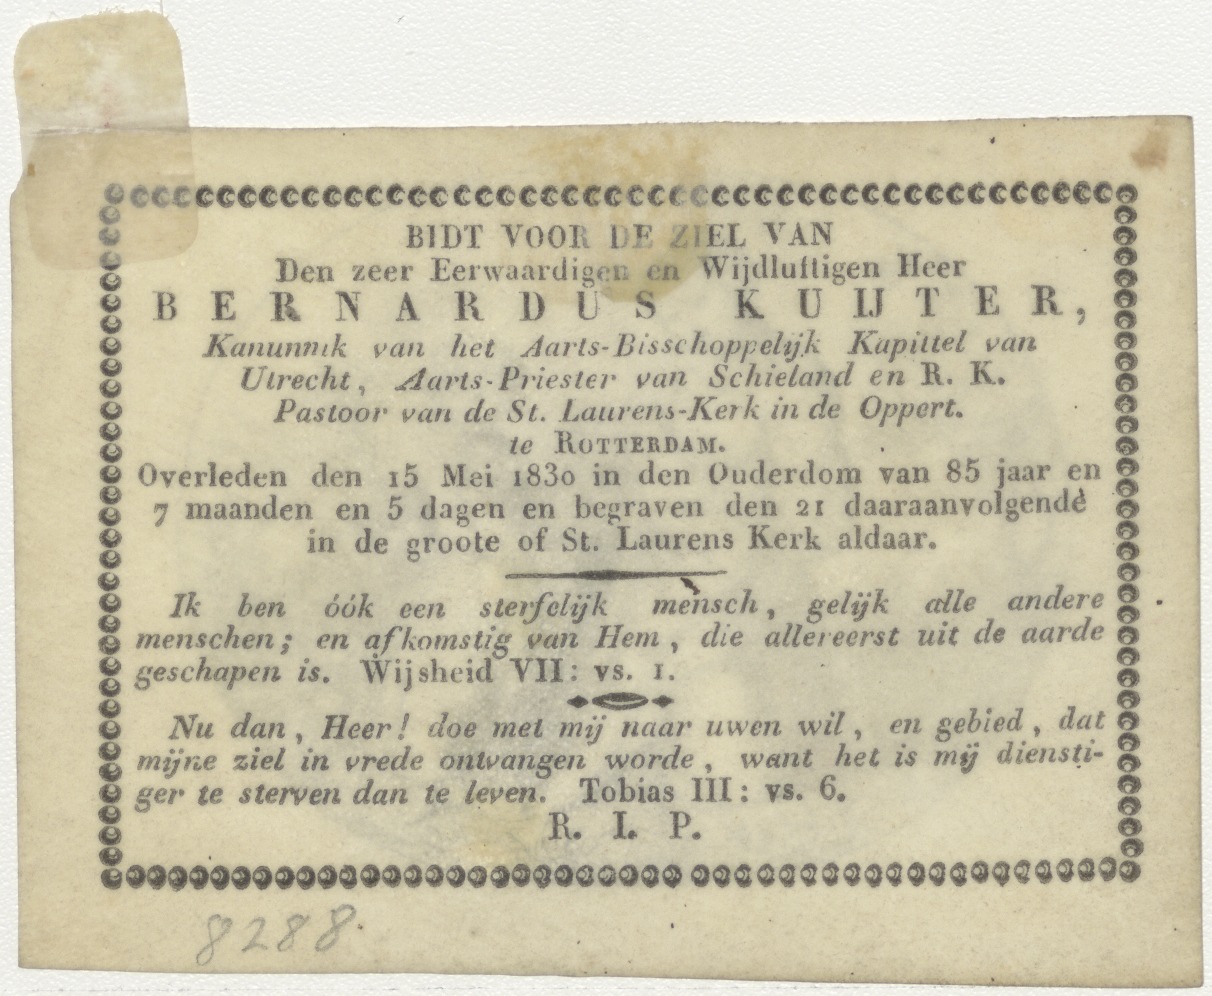 BIDT VOOR DE ZIEL VAN
Den zeer Eerwaardigen en Wijdluftigen Heer
BERNARDUS KUIJTER,
Kanunnik van het Aarts-Bisschoppelijk Kapittel van
Utrecht, Aarts-Priester van Schieland en R. K.
Pastoor van de St. Laurens-Kerk in de Oppert.
te ROTTERDAM.
Overleden den 15 Mei 1830 in den Ouderdom van 85 jaar en
7 maanden en 5 dagen en begraven den 21 daaraanvolgende
in de groote of St. Laurens Kerk aldaar.
Ik ben óók een sterfelijk mensch, gelijk alle andere
menschen; en afkomstig van Hem, die allereerst uit de aarde
geschapen is. Wijsheid VII: vs. 1.
Nu dan, Heer! doe met mij naar uwen wil, en gebied, dat
mijne ziel in vrede ontvangen worde, want het is mij diensti-
ger te sterven dan te leven. Tobias III: vs. 6.
R. I. P.
8288